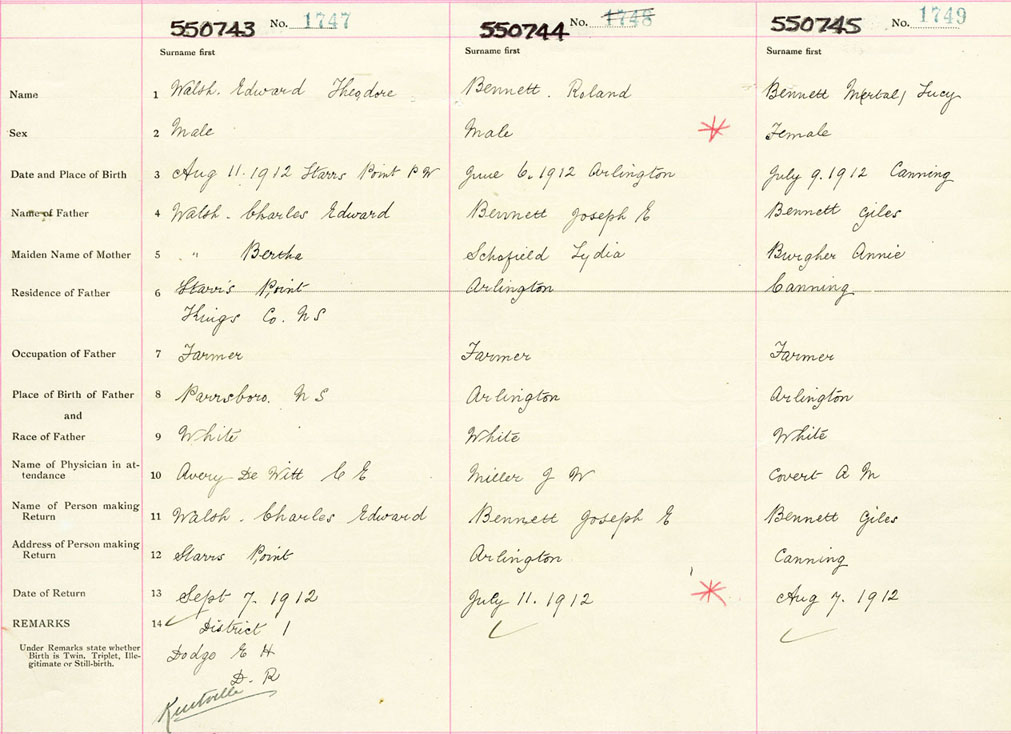 550743 No. 1747 550744 No. 1748 550745 No. 1749
Surname first Surname first Surname first
Name 1 Walsh. Edward Theodore Bennett. Roland Bennett Lucy
Sex 2 Male Male Female
Date and Place of Birth 3 Aug 11. 1912 Starrs Point P W June 6, 1912 Arlington July 9. 1912 Canning
Name of Father 4 Walsh. Charles Edward Bennett Joseph E Bennett Giles
Maiden Name of Mother 5 " Bertha Schofield Lydia Burgher Annie
Residence of Father 6 Starr's Point Arlington Canning
Kings Co. N S
Occupation of Father 7 Farmer Farmer Farmer
Place of Birth of Father 8 Parrsboro. N S Arlington Arlington
and
Race of Father 9 White White White
Name of Physician in at-
tendance 10 Avery De Witt C E Miller J W Covert A M
Name of Person making
Return 11 Walsh. Charles Edward Bennett Joseph E Bennett Giles
Address of Person making
Return 12 Starrs Point Arlington Canning
Date of Return 13 Sept 7. 1912 July 11. 1912 Aug 7. 1912
REMARKS 14 District 1
Under Remarks state whether
Birth is Twin, Triplet, Ille-
gitimate or Still-birth.
Dodge E H
D. R
Kentville